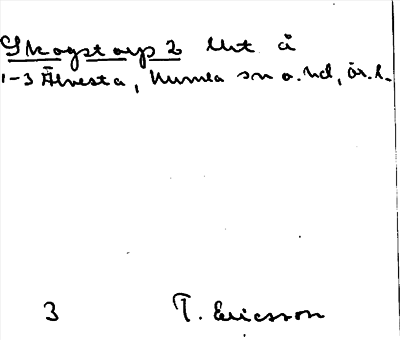 Skogstorp 2 lht å
1-3 Älvesta, Kumla sn o. hd, ör. l.
3 T. Ericsson